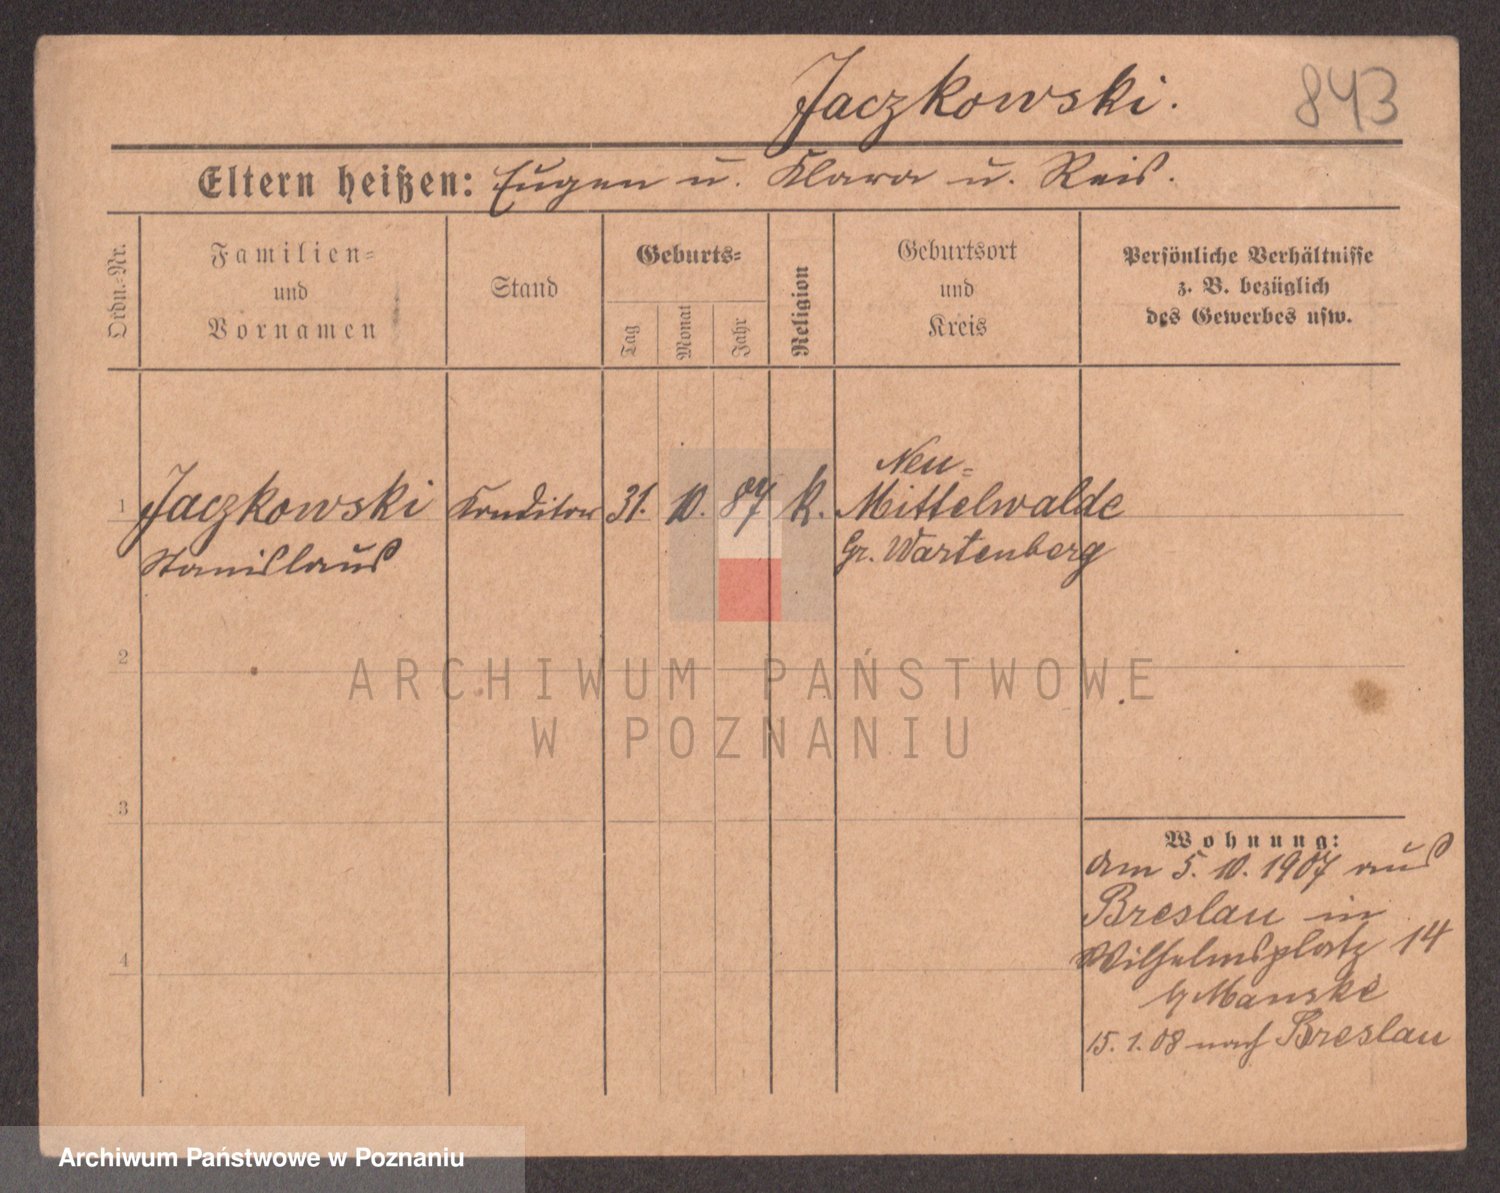 Jaczkowski.
843
Eltern heißen: Eugen u. Klara u. Reis.
Ordn.-Nr.
Familien-
und
Vornamen
Stand
Geburts-
Tag
Monat
Jahr
Religion
Geburtsort
und
Kreis
Persönliche Verhältnisse
z. B. bezüglich
des Gewerbes usw.
1 Jaczkowski Konditor 31. 10. 87 k. Neu-
Mittelwalde
Stanislaus Gr. Wartenberg
2
ARCHIWUM PAŃSTWOWE
W POZNANIU
3
Wohnung:
Am 5. 10. 1907 aus
Breslau in
4
Wilhelmsplatz 14
Manske
15. 1. 08 nach Breslau
Archiwum Państwowe w Poznaniu